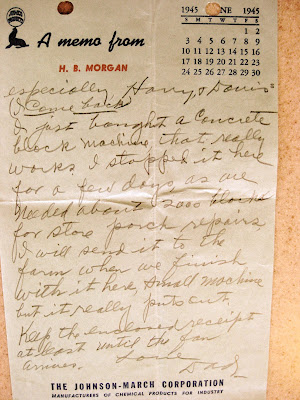 1945 JUNE 1945
S M T W T F S
1 2
3 4 5 6 7 8 9
10 11 12 13 14 15 16
17 18 19 20 21 22 23
24 25 26 27 28 29 30
A memo from
H. B. MORGAN
especially Harry & Doris
(Come back)
I just bought a Concrete
block machine that really
works. I stopped it here
for a few days as we
needed about 2000 blocks
for store porch repairs
I will send it to the
farm when we finish
with it here, small machine
but it really puts out.
Keep the enclosed receipt
at least until the fan
arrives. Love
Dad
THE JOHNSON-MARCH CORPORATION
MANUFACTURERS OF CHEMICAL PRODUCTS FOR INDUSTRY